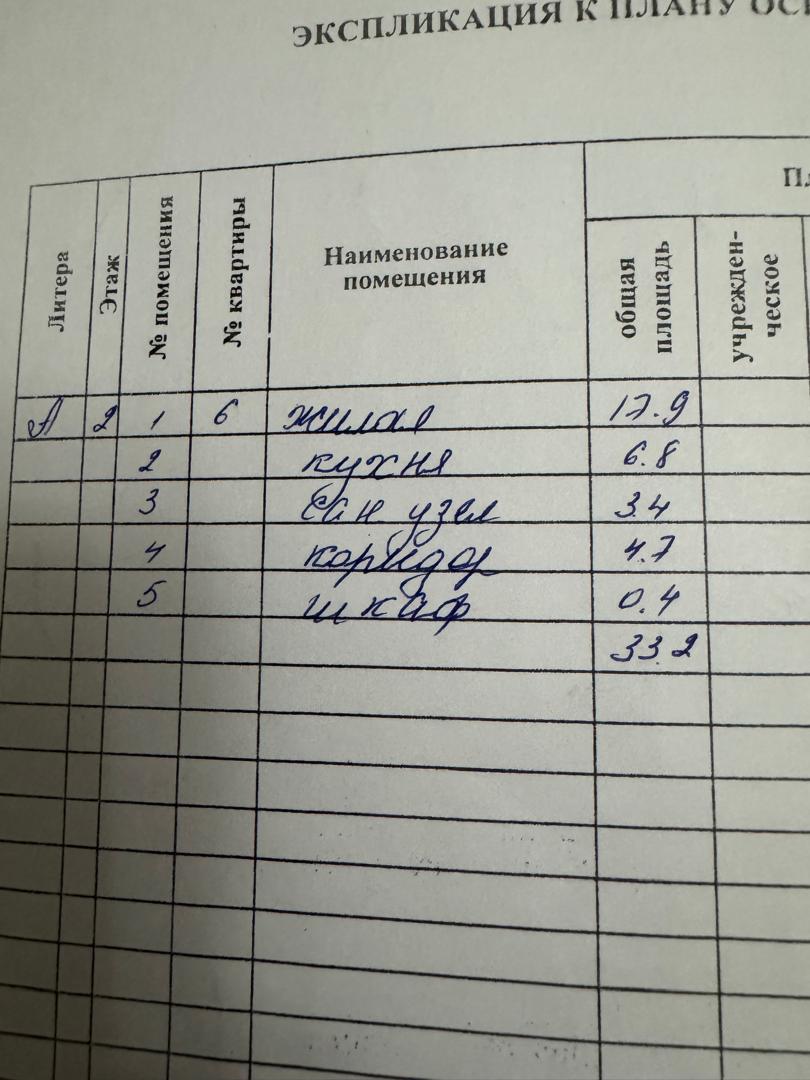 ЭКСПЛИКАЦИЯ К ПЛАНУ ОС
Литера
Этаж
№ помещения
№ квартиры
Наименование
помещения
Пл
общая
площадь
учрежден-
ческое
А 2 1 6 жилая 17.9
2 кухня 6.8
3 Сан узел 3.4
4 коридор 4.7
5 шкаф 0.4
33.2